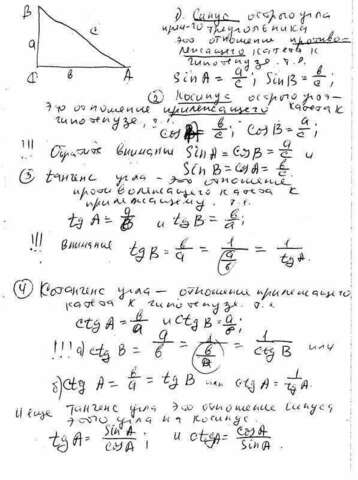 B
a
c
C
в
A
1. Синус острого угла
прям-го треугольника
это отношение противо-
лежащего катета к
гипотенузе. т.е.
sin A = a/c; sin B = в/c;
② Косинус острого угла-
это отношение прилежащего катета к
гипотенузе. т.е.
cos A = в/c; cos B = a/c;
!!! Обратите внимание sin A = cos B = a/c и
sin B = cos A = в/c;
③ тангенс угла - это отношение
противолежащего катета к
прилежащему. т.е.
tg A = a/в и tg B = в/a;
!!! Внимание tg B = в/a = 1/(a/в) = 1/tg A.
④ Котангенс угла - отношение прилежащего
катета к гипотенузе. т.е.
ctg A = в/a и ctg B = a/в;
!!! а) ctg B = a/в = 1/(в/a) = 1/ctg B или
б) ctg A = в/a = tg B или ctg A = 1/tg A.
И еще тангенс угла это отношение синуса
этого угла на косинус.
tg A = sin A/cos A; и ctg A = cos A/sin A.